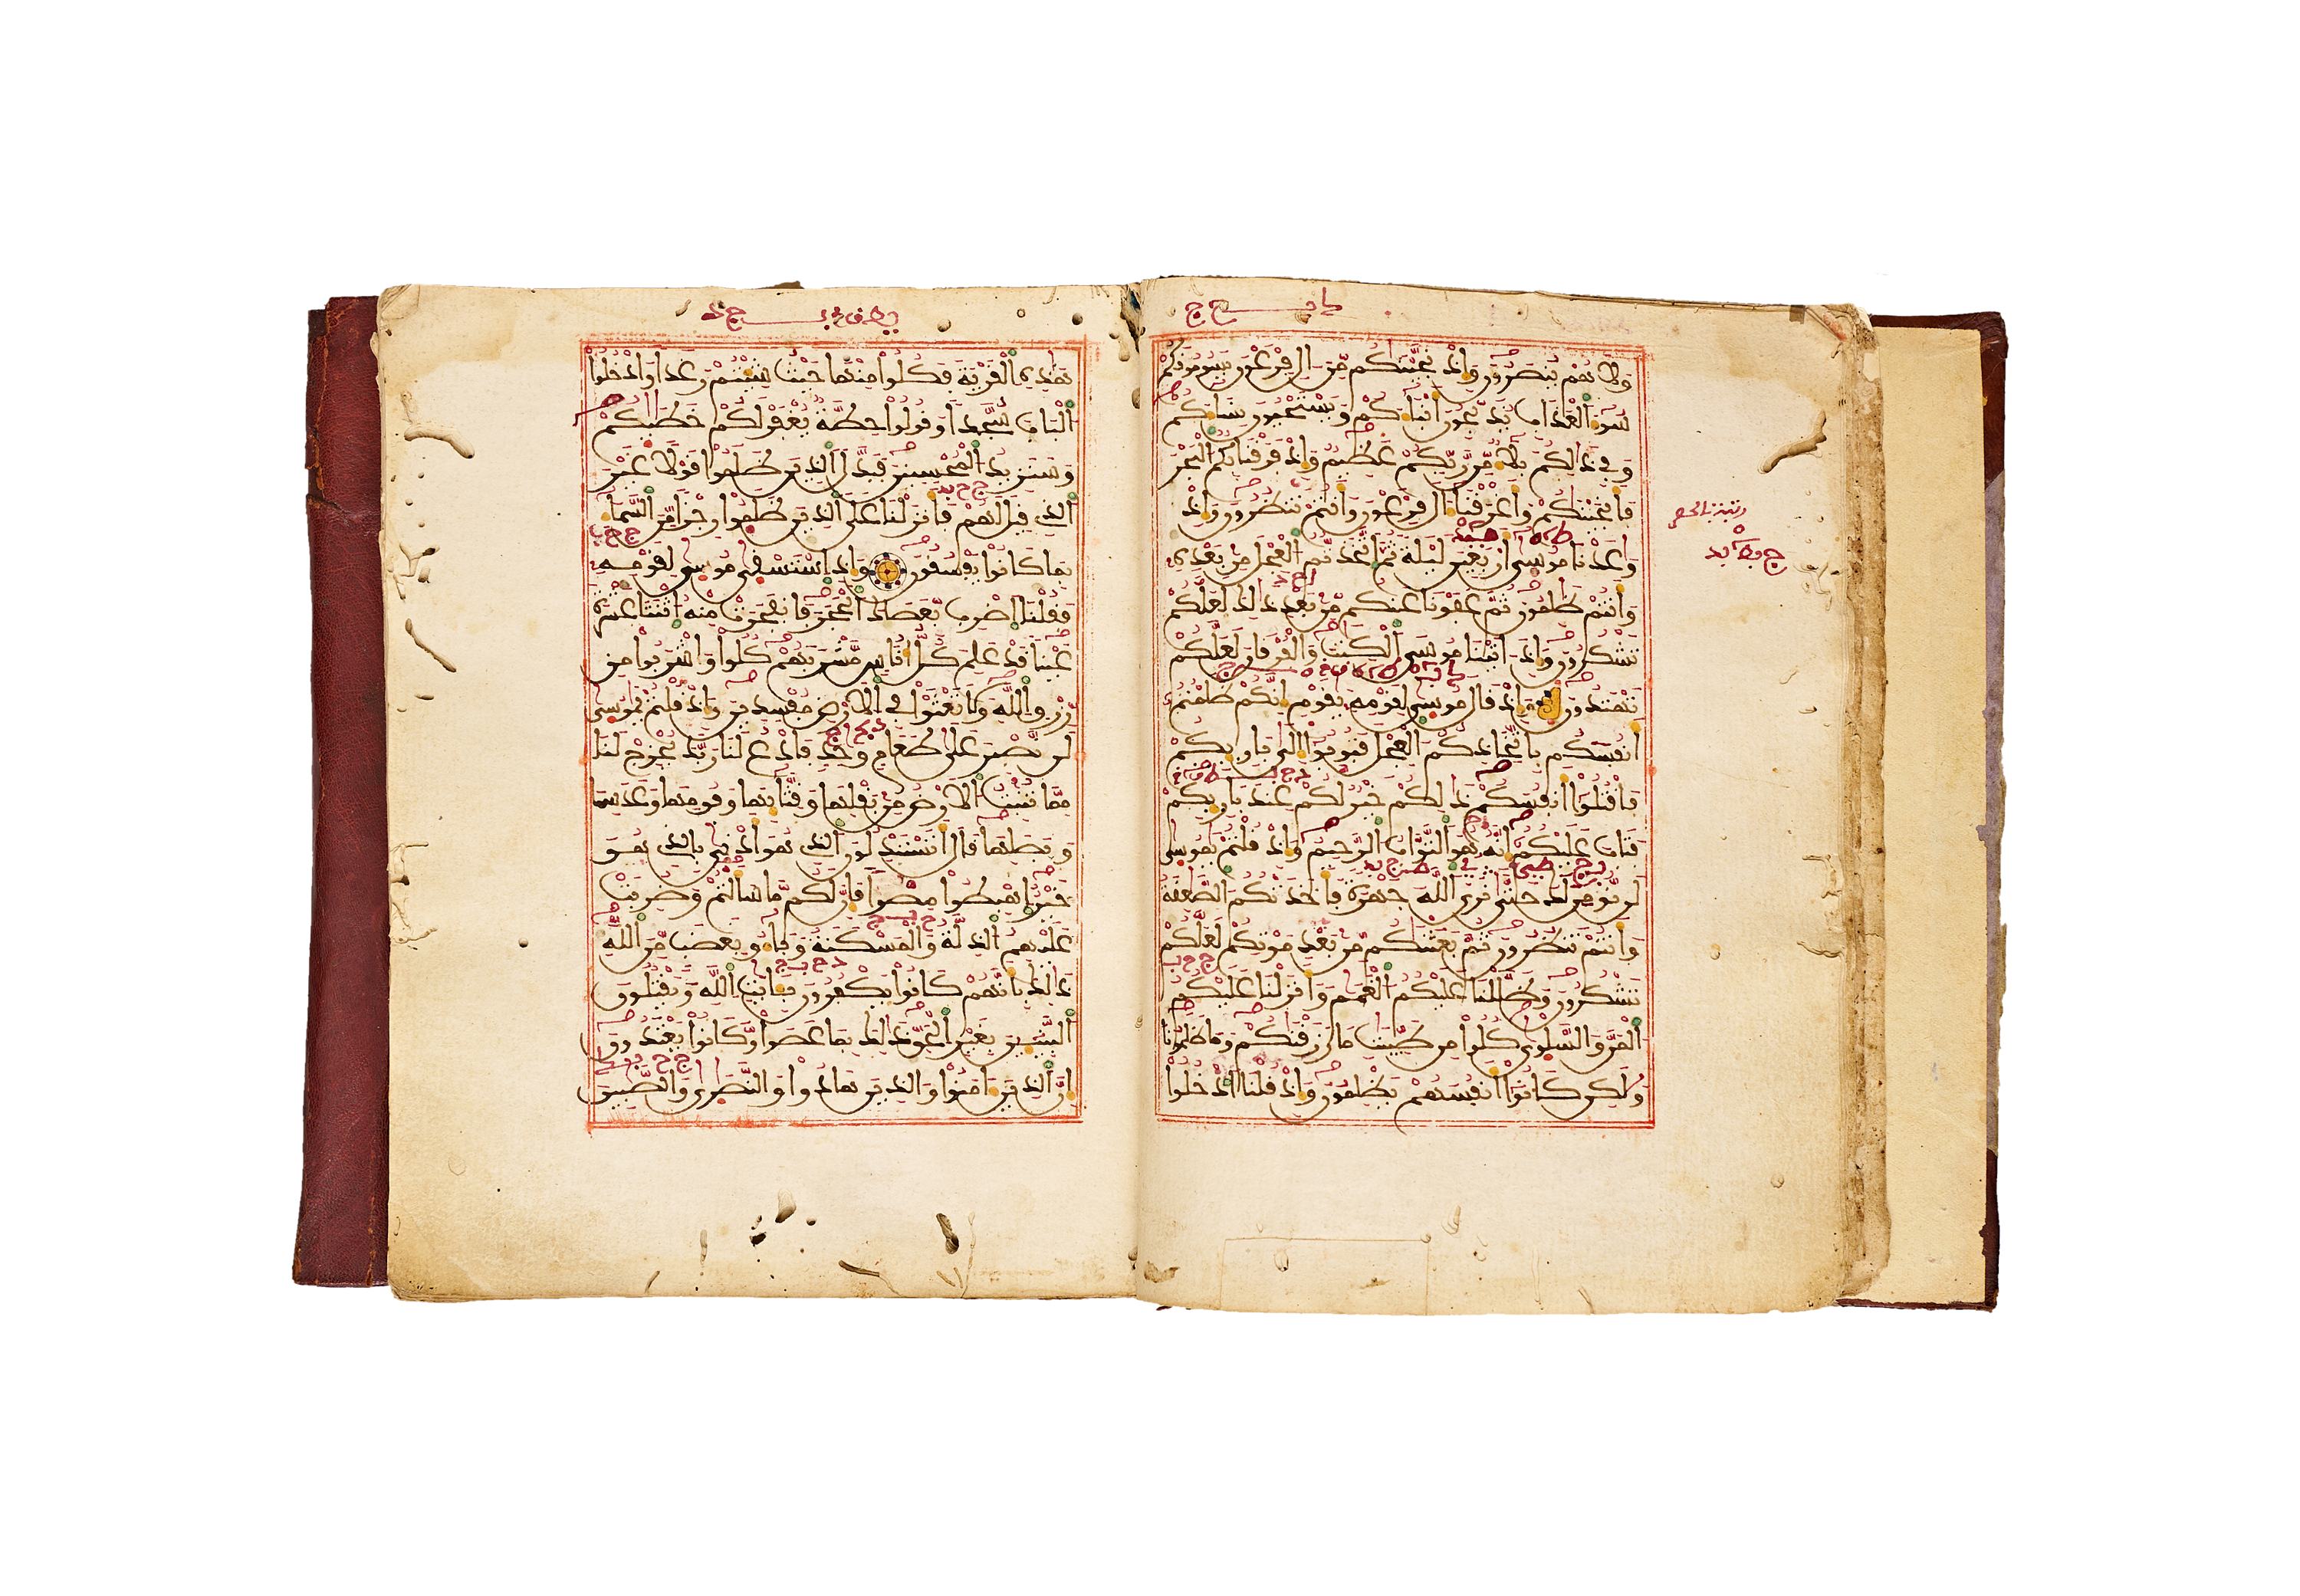 ولا هم ينصرون وإذ نجينكم من ال فرعون يسومونكم
سوء العذاب يذبحون أبناءكم ويستحيون نساءكم
وفي ذالكم بلاء من ربكم عظيم وإذ فرقنا بكم البحر
فأنجينكم وأغرقنا ءال فرعون وأنتم تنظرون وإذ
وعدنا موسى أربعين ليلة ثم اتخذتم العجل من بعده
وأنتم ظلمون ثم عفونا عنكم من بعد ذالك لعلكم
تشكرون وإذ اتينا موسى الكتب والفرقان لعلكم
تهتدون وإذ قال موسى لقومه يقوم إنكم ظلمتم
أنفسكم باتخاذكم العجل فتوبوا إلى بارئكم
فاقتلوا أنفسكم ذالكم خير لكم عند بارئكم
فتاب عليكم إنه هو التواب الرحيم وإذ قلتم يموسى
لن نؤمن لك حتى نرى الله جهرة فأخذتكم الصعقة
وأنتم تنظرون ثم بعثنكم من بعد موتكم لعلكم
تشكرون وظللنا عليكم الغمم وأنزلنا عليكم
المن والسلوى كلوا من طيبت ما رزقنكم وما ظلمونا
ولكن كانوا أنفسهم يظلمون وإذ قلنا ادخلوا
هذه القرية فكلوا منها حيث شئتم رغدا وادخلوا
الباب سجدا وقولوا حطة يغفر لكم خطيكم
وسنزيد المحسنين فبدل الذين ظلموا قولا غير
الذي قيل لهم فأنزلنا على الذين ظلموا رجزا من السماء
بما كانوا يفسقون وإذ استسقى موسى لقومه
فقلنا اضرب بعصاك الحجر فانفجرت منه اثنتا عشرة
عينا قد علم كل أناس مشربهم كلوا واشربوا من
رزق الله ولا تعثوا في الارض مفسدين وإذ قلتم يموسى
لن نصبر على طعام وحد فادع لنا ربك يخرج لنا
مما تنبت الارض من بقلها وقثائها وفومها وعدسها
وبصلها قال أتستبدلون الذي هو أدنى بالذي هو
خير اهبطوا مصرا فإن لكم ما سألتم وضربت
عليهم الذلة والمسكنة وباءو بغضب من الله
ذالك بأنهم كانوا يكفرون بايت الله ويقتلون
النبيين بغير الحق ذالك بما عصوا وكانوا يعتدون
إن الذين ءامنوا والذين هادوا والنصرى والصبين